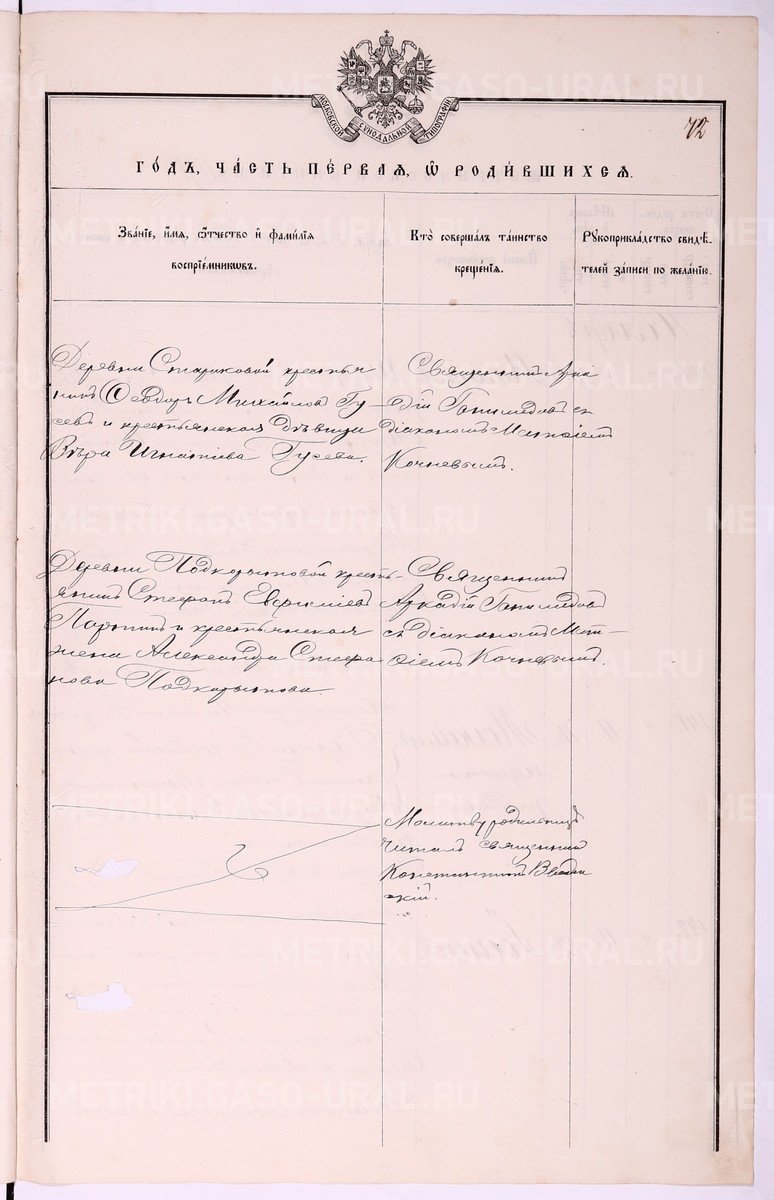 72
МОСКОВСКОЙ СѴНОДАЛЬНОЙ ТИПОГРАФІИ
ГО́ДЪ, ЧА́СТЬ ПЕ́РВАЯ, Ѽ РОДИ́ВШИХСЯ.
Зва́нїе, и҆́мя, ѻ҆́тчество и҆ фами́лїя
воспрїе́мникѡвъ.
Кто̀ соверша́лъ та́инство
креще́нїя.
Рꙋкоприкла́дство свидѣ́-
телей за́писи по жела́нїю.
Деревни Стариковой крестья
нинъ Ѳеодоръ Михайловъ Гу-
севъ и крестьянская дѣвица
Вѣра Игнатіева Гусева.
Священникъ Арка
дій Ганимедовъ съ
діакономъ Матѳіемъ
Кочневымъ.
Деревни Подкорытовой кресть-
янинъ Стефанъ
и крестьянская
жена Александра Стефа
нова Подкорытова.
Священникъ
Аркадій Ганимедовъ
съ діакономъ Мат-
ѳіемъ Кочневымъ.
Молитву родильницѣ
читалъ священникъ
Константинъ Введен
скій.
METRIKI.GASO-URAL.RU